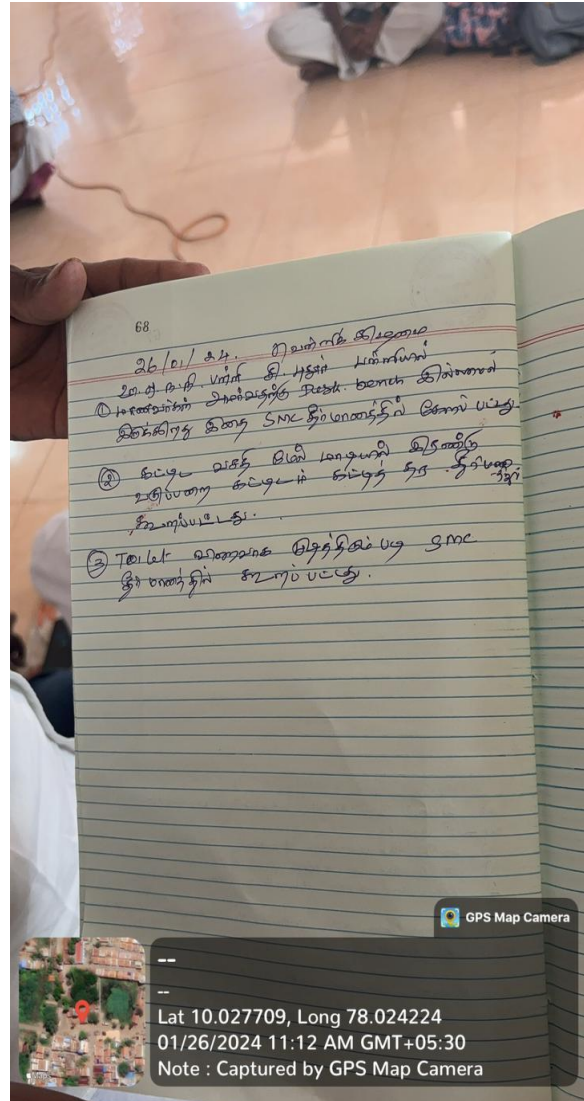 68
26/01/24. வெள்ளிக் கிழமை
ஊ.ஒ.ந.நி. பள்ளி கி. புதூர் பள்ளியில்
① மாணவர்கள் அமர்வதற்கு Desk. bench இல்லாமல்
இருக்கிறது இதை SMC தீர்மானத்தில் சேர்க்கப் பட்டது
② கட்டிட வசதி மேல் மாடியில் இரண்டு
வகுப்பறை கட்டிடம் கட்டித் தர தீர்மானத்தில்
கூறப்பட்டது.
③ Toilet விரைவாக முடித்திடும்படி SMC
தீர்மானத்தில் கூறப் பட்டது.
GPS Map Camera
--
--
Lat 10.027709, Long 78.024224
01/26/2024 11:12 AM GMT+05:30
Note : Captured by GPS Map Camera